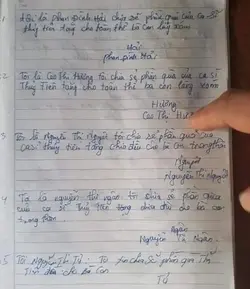 Tôi là phan Đình Hải chia sẻ phần quà của ca sĩ
Thủy Tiên tặng cho toàn thể bà con làng xóm
Hải
phan Đình Hải
2 Tôi là Cao Thị Hương tôi chia sẻ phần quà của ca sĩ
Thủy Tiên tặng cho toàn thể bà con làng xóm
Hương
Cao Thị Hương
3 Tôi là Nguyễn Thị Nguyệt tôi chia sẻ phần quà của
ca sĩ Thủy tiên tặng chia đều cho bà con trong thôn
Nguyệt
Nguyễn Thị Nguyệt
4 Tôi là nguyễn thị ngân tôi chia sẻ phần quà
của ca sĩ Thủy tiên tặng chia đều bà con
trong thôn
Ngân
Nguyễn Thị Ngân
5 Tôi Nguyễn Thị Tứ: Tôi chia sẻ phần quà Thủy
Tiên cho Bà Con
Tứ